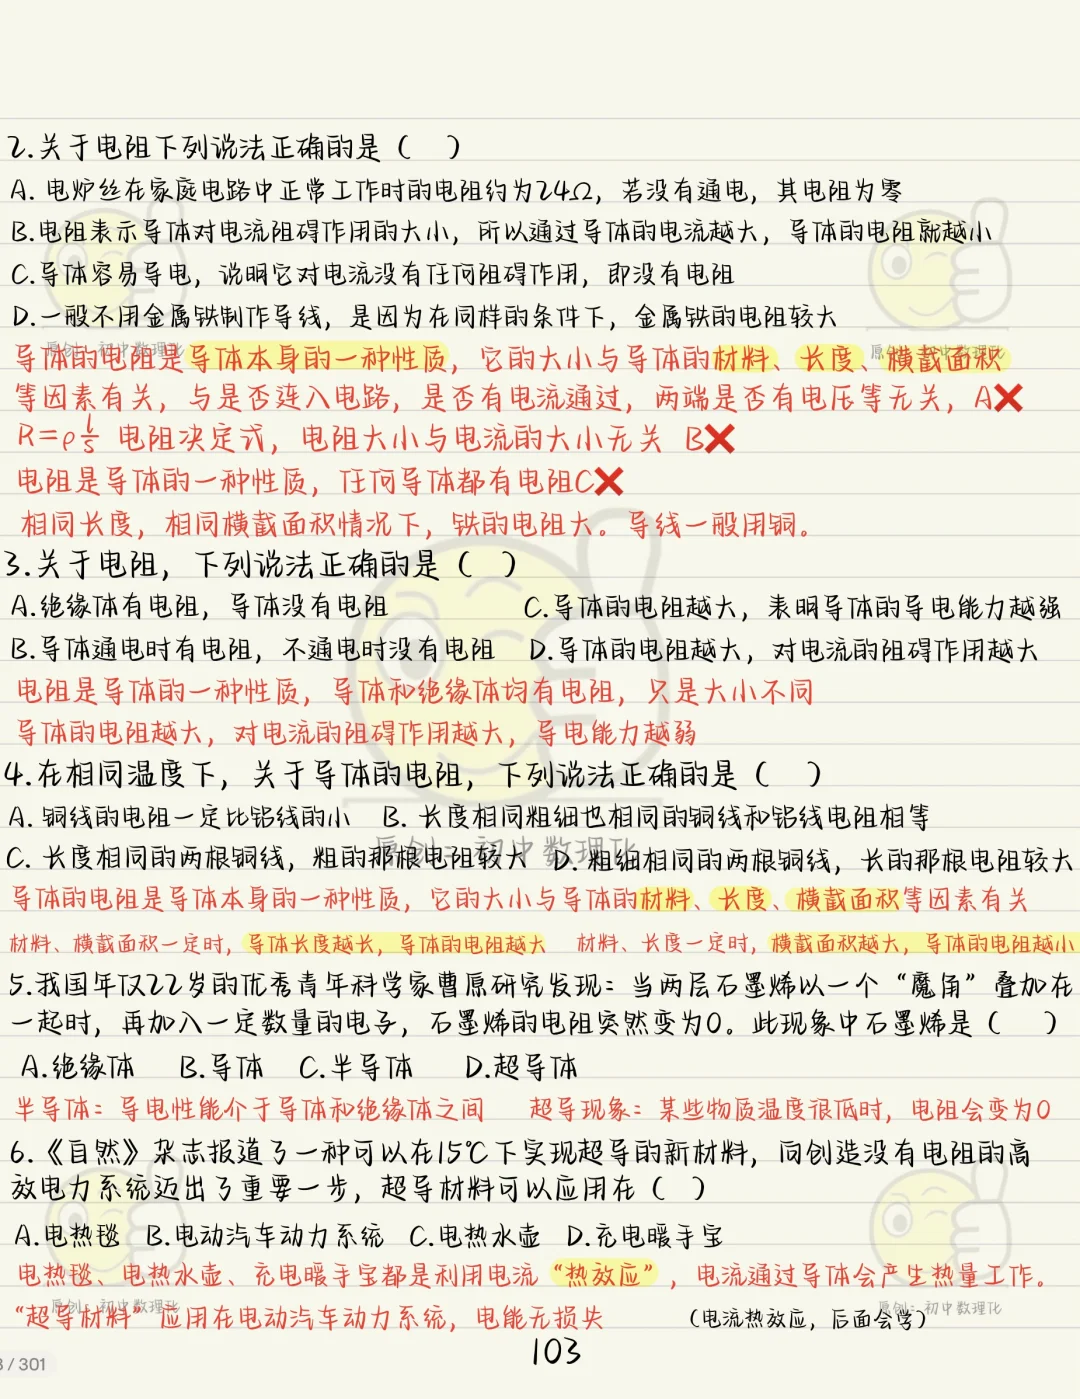 2.关于电阻下列说法正确的是（ ）
A. 电炉丝在家庭电路中正常工作时的电阻约为24Ω，若没有通电，其电阻为零
B.电阻表示导体对电流阻碍作用的大小，所以通过导体的电流越大，导体的电阻就越小
C.导体容易导电，说明它对电流没有任何阻碍作用，即没有电阻
D.一般不用金属铁制作导线，是因为在同样的条件下，金属铁的电阻较大
原创：初中数理化
原创：初中数理化
导体的电阻是导体本身的一种性质，它的大小与导体的材料、长度、横截面积
等因素有关，与是否连入电路，是否有电流通过，两端是否有电压等无关，A❌
R=ρL/S 电阻决定式，电阻大小与电流的大小无关 B❌
电阻是导体的一种性质，任何导体都有电阻C❌
相同长度，相同横截面积情况下，铁的电阻大。导线一般用铜。
3.关于电阻，下列说法正确的是（ ）
A.绝缘体有电阻，导体没有电阻 C.导体的电阻越大，表明导体的导电能力越强
B.导体通电时有电阻，不通电时没有电阻 D.导体的电阻越大，对电流的阻碍作用越大
电阻是导体的一种性质，导体和绝缘体均有电阻，只是大小不同
导体的电阻越大，对电流的阻碍作用越大，导电能力越弱
4.在相同温度下，关于导体的电阻，下列说法正确的是（ ）
A. 铜线的电阻一定比铝线的小 B. 长度相同粗细也相同的铜线和铝线电阻相等
原创：初中数理化
C. 长度相同的两根铜线，粗的那根电阻较大 D. 粗细相同的两根铜线，长的那根电阻较大
导体的电阻是导体本身的一种性质，它的大小与导体的材料、长度、横截面积等因素有关
材料、横截面积一定时，导体长度越长，导体的电阻越大 材料、长度一定时，横截面积越大，导体的电阻越小
5.我国年仅22岁的优秀青年科学家曹原研究发现：当两层石墨烯以一个“魔角”叠加在
一起时，再加入一定数量的电子，石墨烯的电阻突然变为0。此现象中石墨烯是（ ）
A.绝缘体 B.导体 C.半导体 D.超导体
半导体：导电性能介于导体和绝缘体之间 超导现象：某些物质温度很低时，电阻会变为0
6.《自然》杂志报道了一种可以在15℃下实现超导的新材料，向创造没有电阻的高
效电力系统迈出了重要一步，超导材料可以应用在（ ）
A.电热毯 B.电动汽车动力系统 C.电热水壶 D.充电暖手宝
电热毯、电热水壶、充电暖手宝都是利用电流“热效应”，电流通过导体会产生热量工作。
原创：初中数理化
原创：初中数理化
“超导材料”应用在电动汽车动力系统，电能无损失 （电流热效应，后面会学）
103
3/301